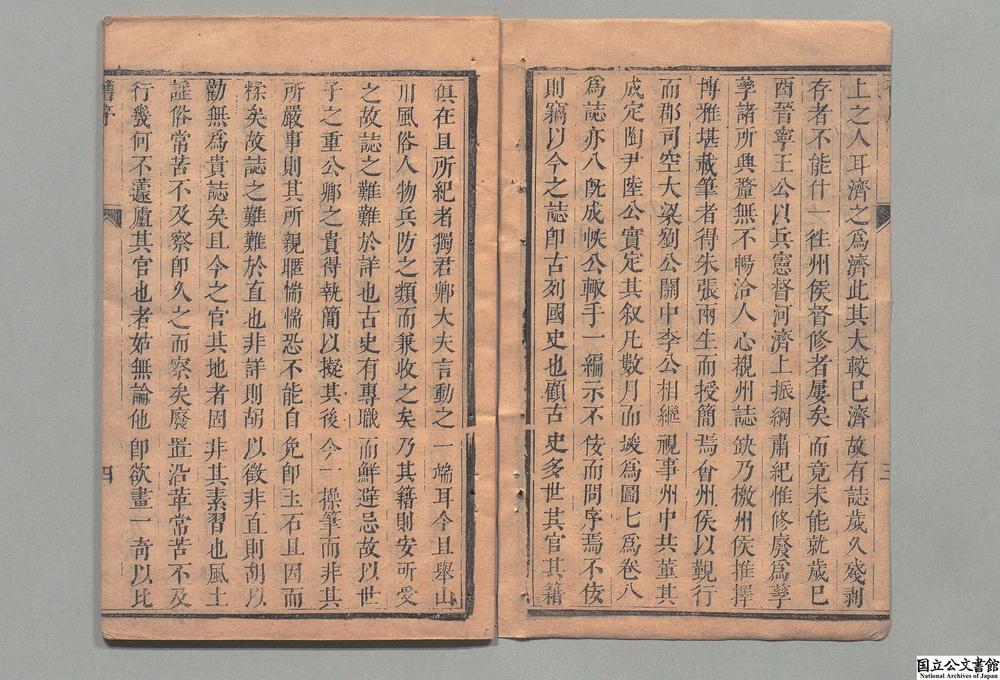 上之人耳濟之爲濟此其大較已濟故有誌歲久殘剥
存者不能什一徃州侯督修者屢矣而竟未能就歲己
酉晉寧王公以兵憲督河濟上振綱肅紀惟修廢爲孳
孳諸所興釐無不暢洽人心覩州誌缺乃檄州侯推擇
博雅堪載筆者得朱張兩生而授簡焉會州侯以覲行
而郡司空大梁劉公關中李公相繼視事州中共董其
成定陶尹陸公實定其叙凡數月而竣爲圖七爲卷八
爲誌亦八旣成帙公輙手一編示不佞而問序焉不佞
則竊以今之誌卽古列國史也顧古史多世其官其籍
俱在且所紀者獨君卿大夫言動之一端耳今且舉山
川風俗人物兵防之類而兼收之矣乃其籍則安所受
之故誌之難難於詳也古史有專職而鮮避忌故以世
子之重公卿之貴得執簡以擬其後今一操筆而非其
所嚴事則其所親暱惴惴恐不能自免卽玉石且因而
糅矣故誌之難難於直也非詳則胡以徵非直則胡以
勸無爲貴誌矣且今之官其地者固非其素習也風土
謡俗常苦不及察卽久之而察矣廢置沿革常苦不及
行幾何不蘧廬其官也者姑無論他卽欲畫一奇以比
舊序
三
四
国立公文書館
National Archives of Japan